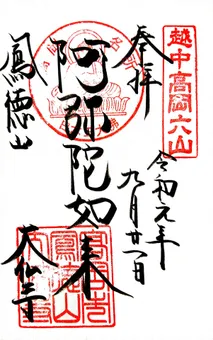 越中高岡六山
奉拝
令和元年
九月廿一日
阿弥陀如来
鳳徳山
大仙寺